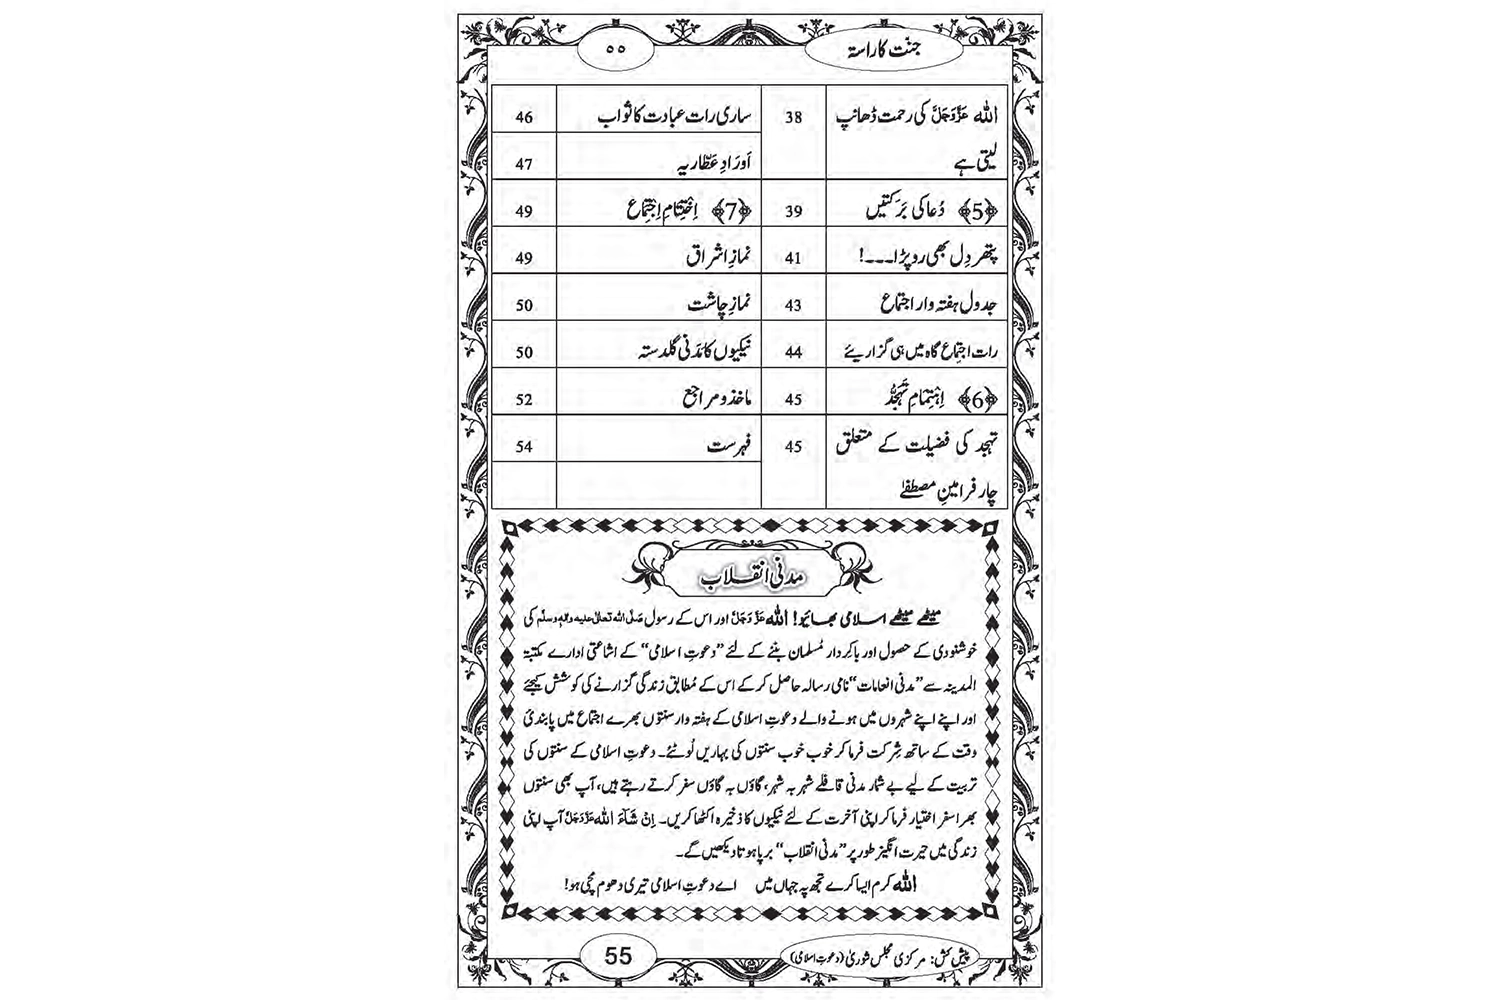 جنّت کا راستہ
٥٥
اللّٰہ عَزَّوَجَلَّ کی رحمت ڈھانپ 38 ساری رات عبادت کا ثواب 46
لیتی ہے اَورَادِ عَطّاریہ 47
﴿5﴾ دُعا کی بَرَکتیں 39 ﴿7﴾ اِخْتِتامِ اِجْتِماع 49
پتھر دِل بھی رو پڑا۔۔۔! 41 نمازِ اشراق 49
جدول ہفتہ وار اجتماع 43 نمازِ چاشت 50
رات اجتماع گاہ میں ہی گزاریئے 44 نیکیوں کا مَدَنی گلدستہ 50
﴿6﴾ اِہْتِمامِ تَہَجُّد 45 ماخذ و مراجع 52
تہجد کی فضیلت کے متعلق 45 فہرست 54
چار فرامینِ مصطفےٰ
مدنی انقلاب
میٹھے میٹھے اسلامی بھائیو! اللّٰہ عَزَّوَجَلَّ اور اس کے رسول صَلَّی اللہ تعالٰی علیہ واٰلہٖ وسلَّم کی
خوشنودی کے حصول اور باکِردار مُسلمان بننے کے لئے ”دعوتِ اسلامی“ کے اشاعتی ادارے مکتبۃ
المدینہ سے ”مدنی انعامات“ نامی رسالہ حاصل کر کے اس کے مُطابق زندگی گزارنے کی کوشش کیجئے
اور اپنے اپنے شہروں میں ہونے والے دعوتِ اسلامی کے ہفتہ وار سنتوں بھرے اجتماع میں پابندیٔ
وقت کے ساتھ شِرکت فرما کر خوب خوب سنتوں کی بہاریں لُوٹئے۔ دعوتِ اسلامی کے سنتوں کی
تربیت کے لیے بے شمار مدنی قافلے شہر بہ شہر، گاؤں بہ گاؤں سفر کرتے رہتے ہیں، آپ بھی سنتوں
بھرا سفر اختیار فرما کر اپنی آخرت کے لئے نیکیوں کا ذخیرہ اکٹھا کریں۔ اِنْ شَآءَ اللّٰہ عَزَّوَجَلَّ آپ اپنی
زندگی میں حیرت انگیز طور پر ”مدنی انقلاب“ برپا ہوتا دیکھیں گے۔
اللّٰہ کرم ایسا کرے تجھ پہ جہاں میں اے دعوتِ اسلامی تیری دھوم مچی ہو!
پیش کش: مرکزی مجلس شوریٰ (دعوتِ اسلامی)
55